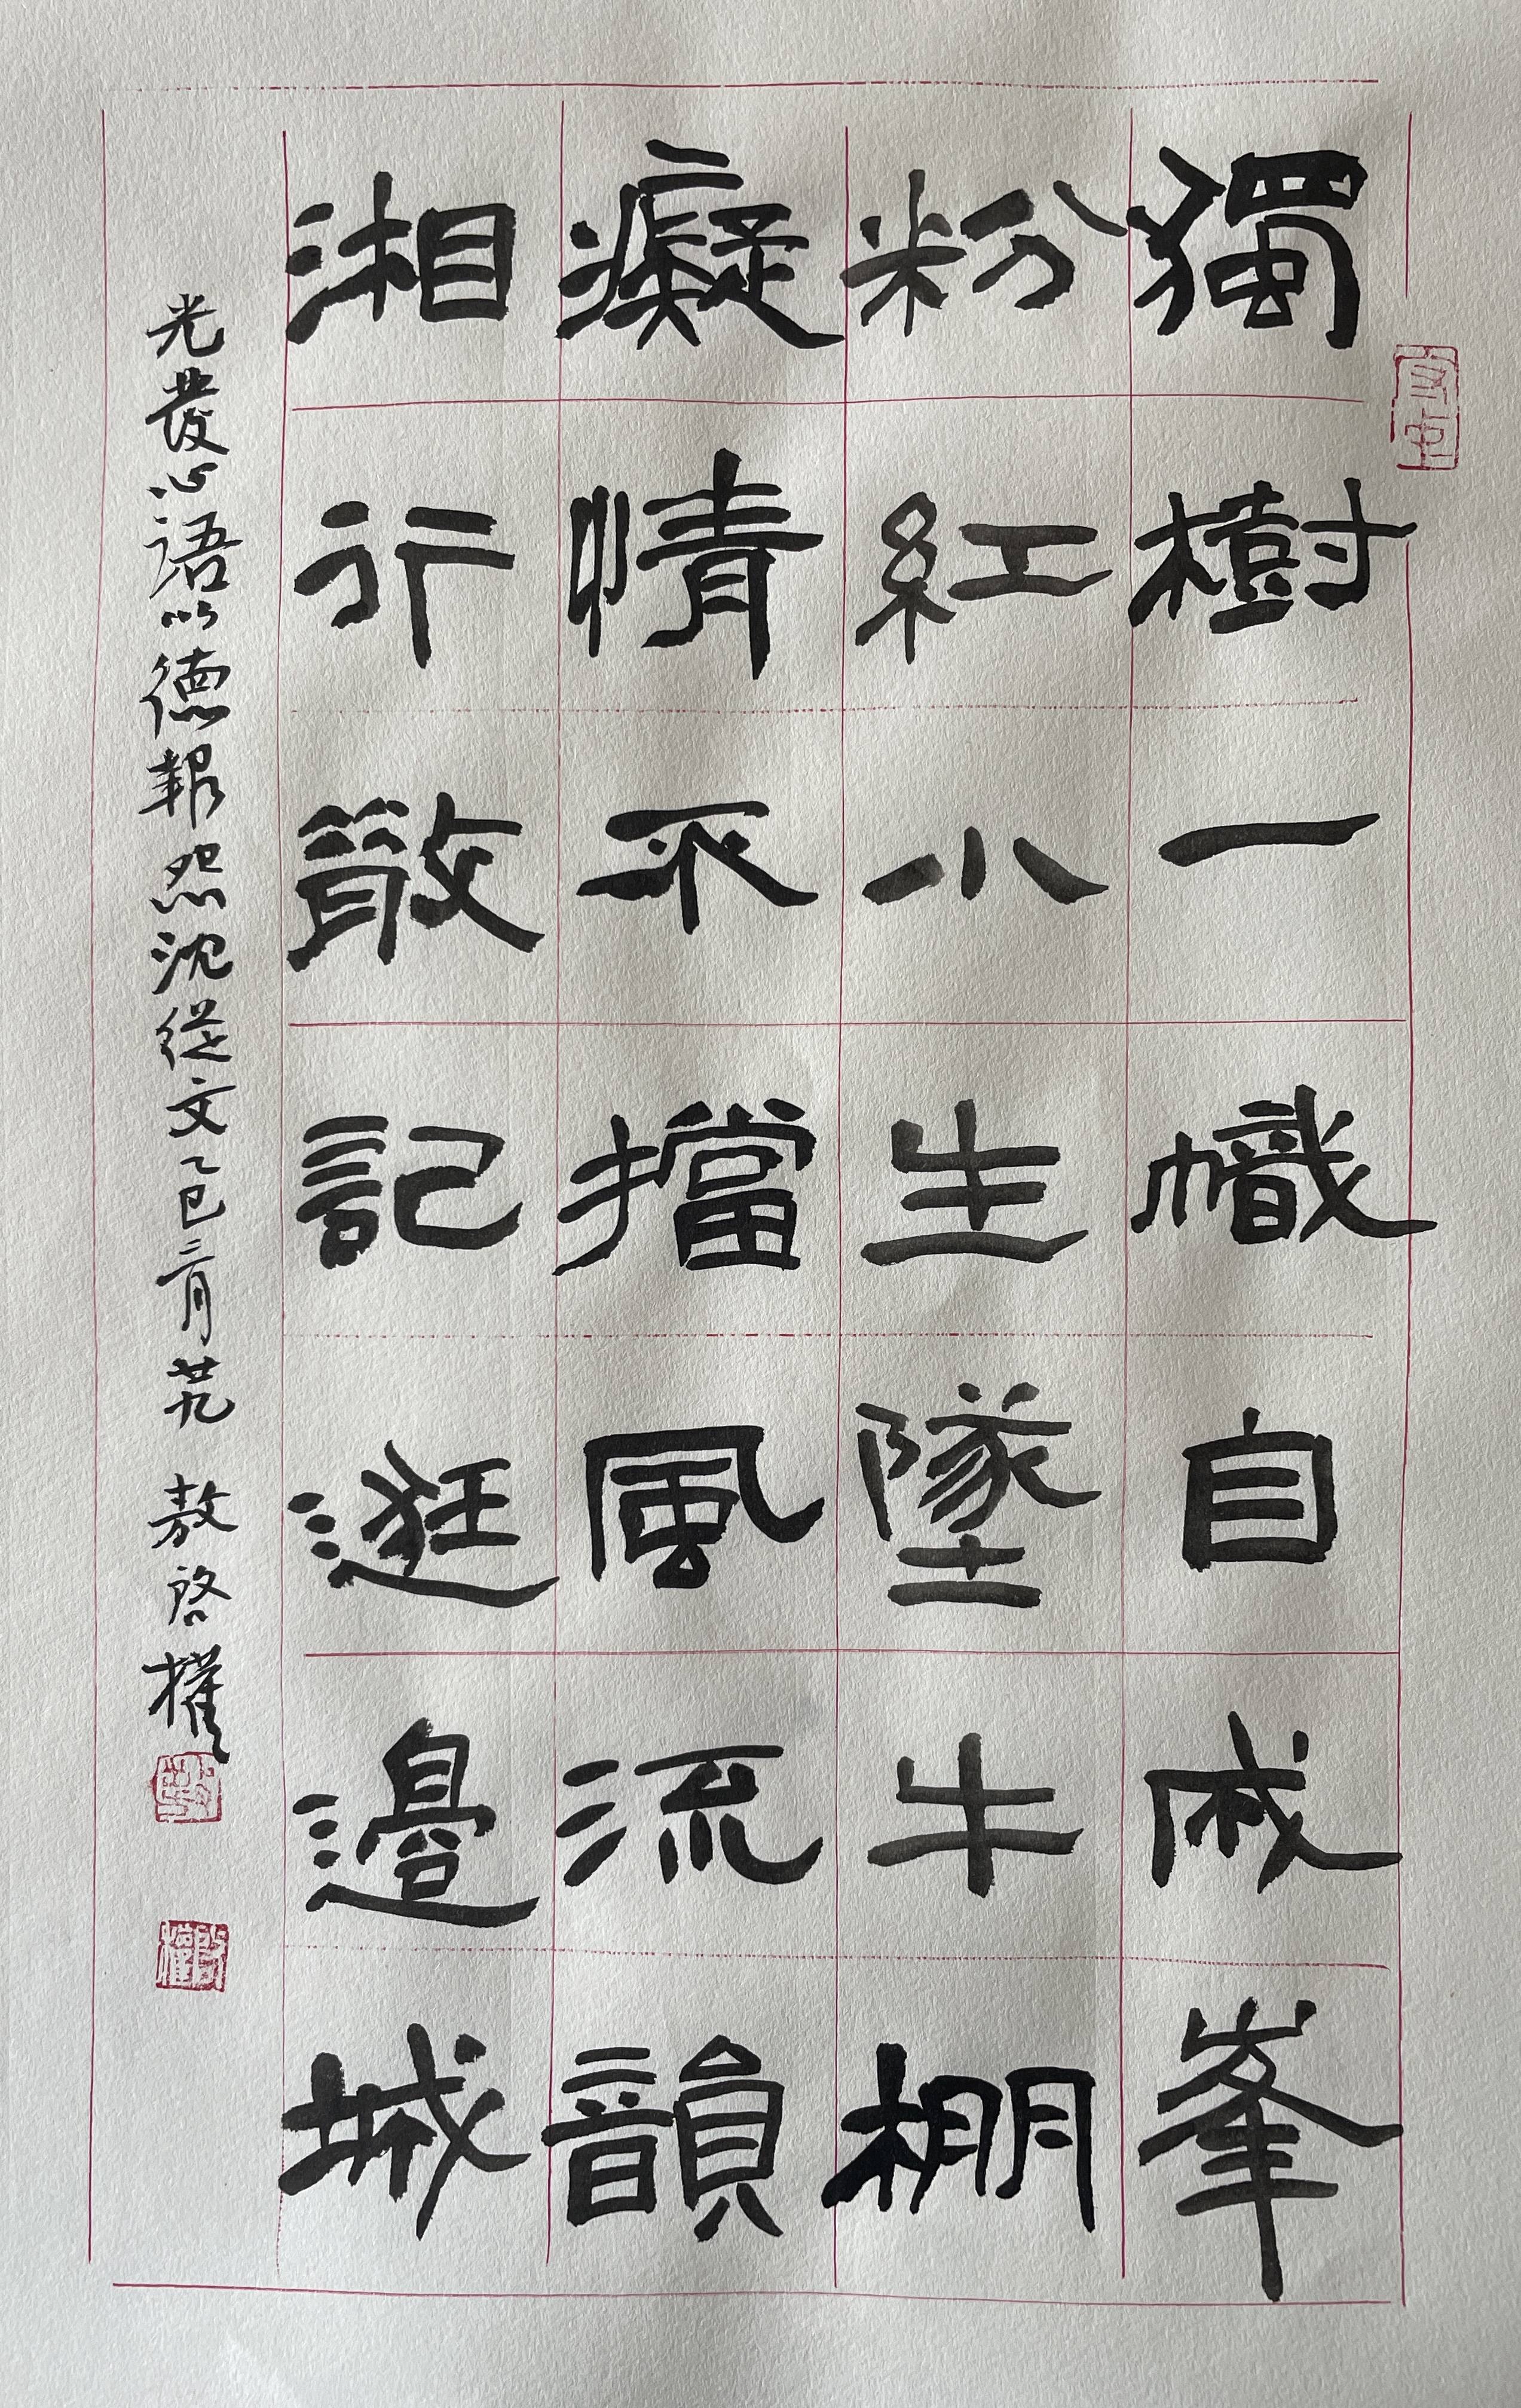 獨樹一幟自成峯
粉紅小生墜牛棚
癡情不擋風流韻
湘行散記逛邊城
光發心语以德報怨沈從文乙巳二月廿九 敖啓權